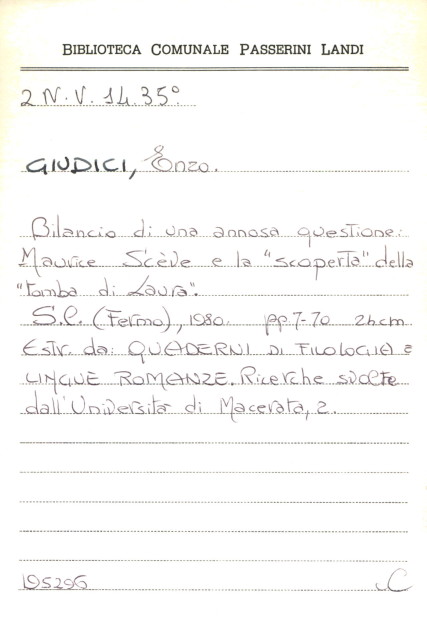 BIBLIOTECA COMUNALE PASSERINI LANDI
2 N.V. 14.35°
GIUDICI, Enzo.
Bilancio di una annosa questione:
Maurice Scève e la "scoperta" della
"tomba di Laura".
S.l. (Fermo), 1980. pp. 7-70 24 cm
Estr. da: QUADERNI DI FILOLOGIA E
LINGUE ROMANZE. Ricerche svolte
dall'Università di Macerata, 2.
195296 C